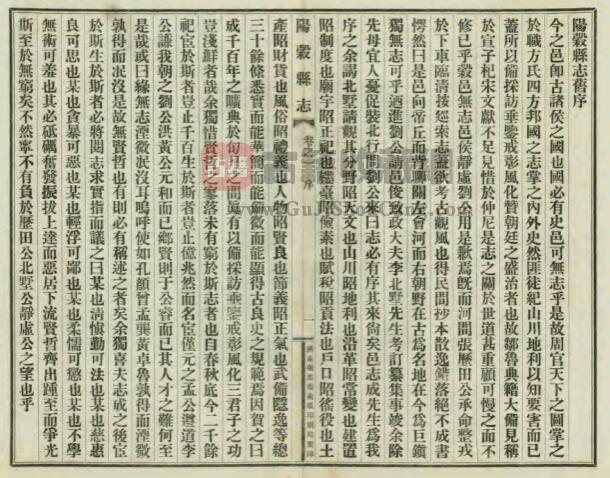 陽穀縣志舊序
今之邑卽古諸侯之國也國必有史邑可無志乎是故周官天下之圖掌之
於職方氏四方邦國之志掌之內外史然匪徒紀山川地利以知要害而已
蓋所以備採訪垂鑒戒彰風化贊朝廷之盛治者也故鄒魯典籍大備見稱
於宣子杞宋文獻不足見惜於仲尼是志之關於世道甚重顧可慢之而不
修已乎穀邑無志邑侯靜虛劉公用是歉焉旣而河間張歷田公承命整戎
於下車臨清按經索志蓋欲考古觀風也得民間抄本散逸錯落絕不成書
愕然曰是邑向帝丘而背聊關左會河而右朝野在古爲名地在今爲巨鎮
獨無志可乎迺進劉公請邑俊致政大夫李北墅先生考訂纂集事竣余除
先母宜人憂促裝北行問劉公來曰志必有序其來尙矣邑志成先生爲我
序之余謁北墅請觀其分野昭天文也山川昭地利也沿革昭常變也建置
昭制度也廟宇昭正祀也樓臺昭儉素也賦稅昭貢法也戶口昭徭役也土
陽穀縣志
卷之 序
一
產昭財貨也風俗昭禮義也人物昭賢良也節義昭正氣也武備隱逸等總
三十餘條悉實而能華簡而能 微而能顯得古良史之規範焉因賀之曰
成千百年之曠典於旬月之間眞有以備採訪垂鑒戒彰風化三君子之功
豈淺鮮者哉余獨惜賢哲之寥落未有窮於斯志者也自春秋底今二千餘
祀宦於斯者豈止千百生於斯者豈止億兆然而名宦僅元之孟公遵道李
公謙我朝之劉公洪黃公元和而已鄉賢則于公睿而已其人才之難何至
是哉或曰緣無志湮微泯沒耳嗚呼使如孔顏曾孟龔黃卓魯孰得而湮微
孰得而泯沒是故無賢哲也有則必有稱述之者矣余獨喜夫志成之後宦
於斯生於斯者必將閱志求實指而議之曰某也清慎勤可法也某也慈惠
良可思也某也貪暴可惡也某也輕浮可鄙也某也柔懦可懲也某也不學
無術可羞也其必砥礪奮發振拔上達而惡居下流賢哲齊出踵至而爭光
斯至於無窮矣不然寧不有負於歷田公北墅公靜虛公之望也乎